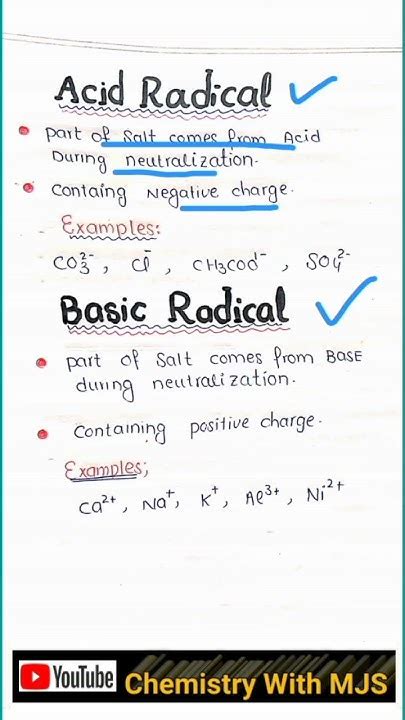 Acid Radical
Part of Salt comes from Acid
During neutralization.
Containg Negative charge.
Examples:
CO₃²⁻, Cl⁻, CH3COO⁻, SO4²⁻
Basic Radical
part of Salt comes from BASE
during neutralization.
Containing positive charge.
Examples;
Ca²⁺, Na⁺, K⁺, Al³⁺, Ni²⁺
YouTube Chemistry With MJS